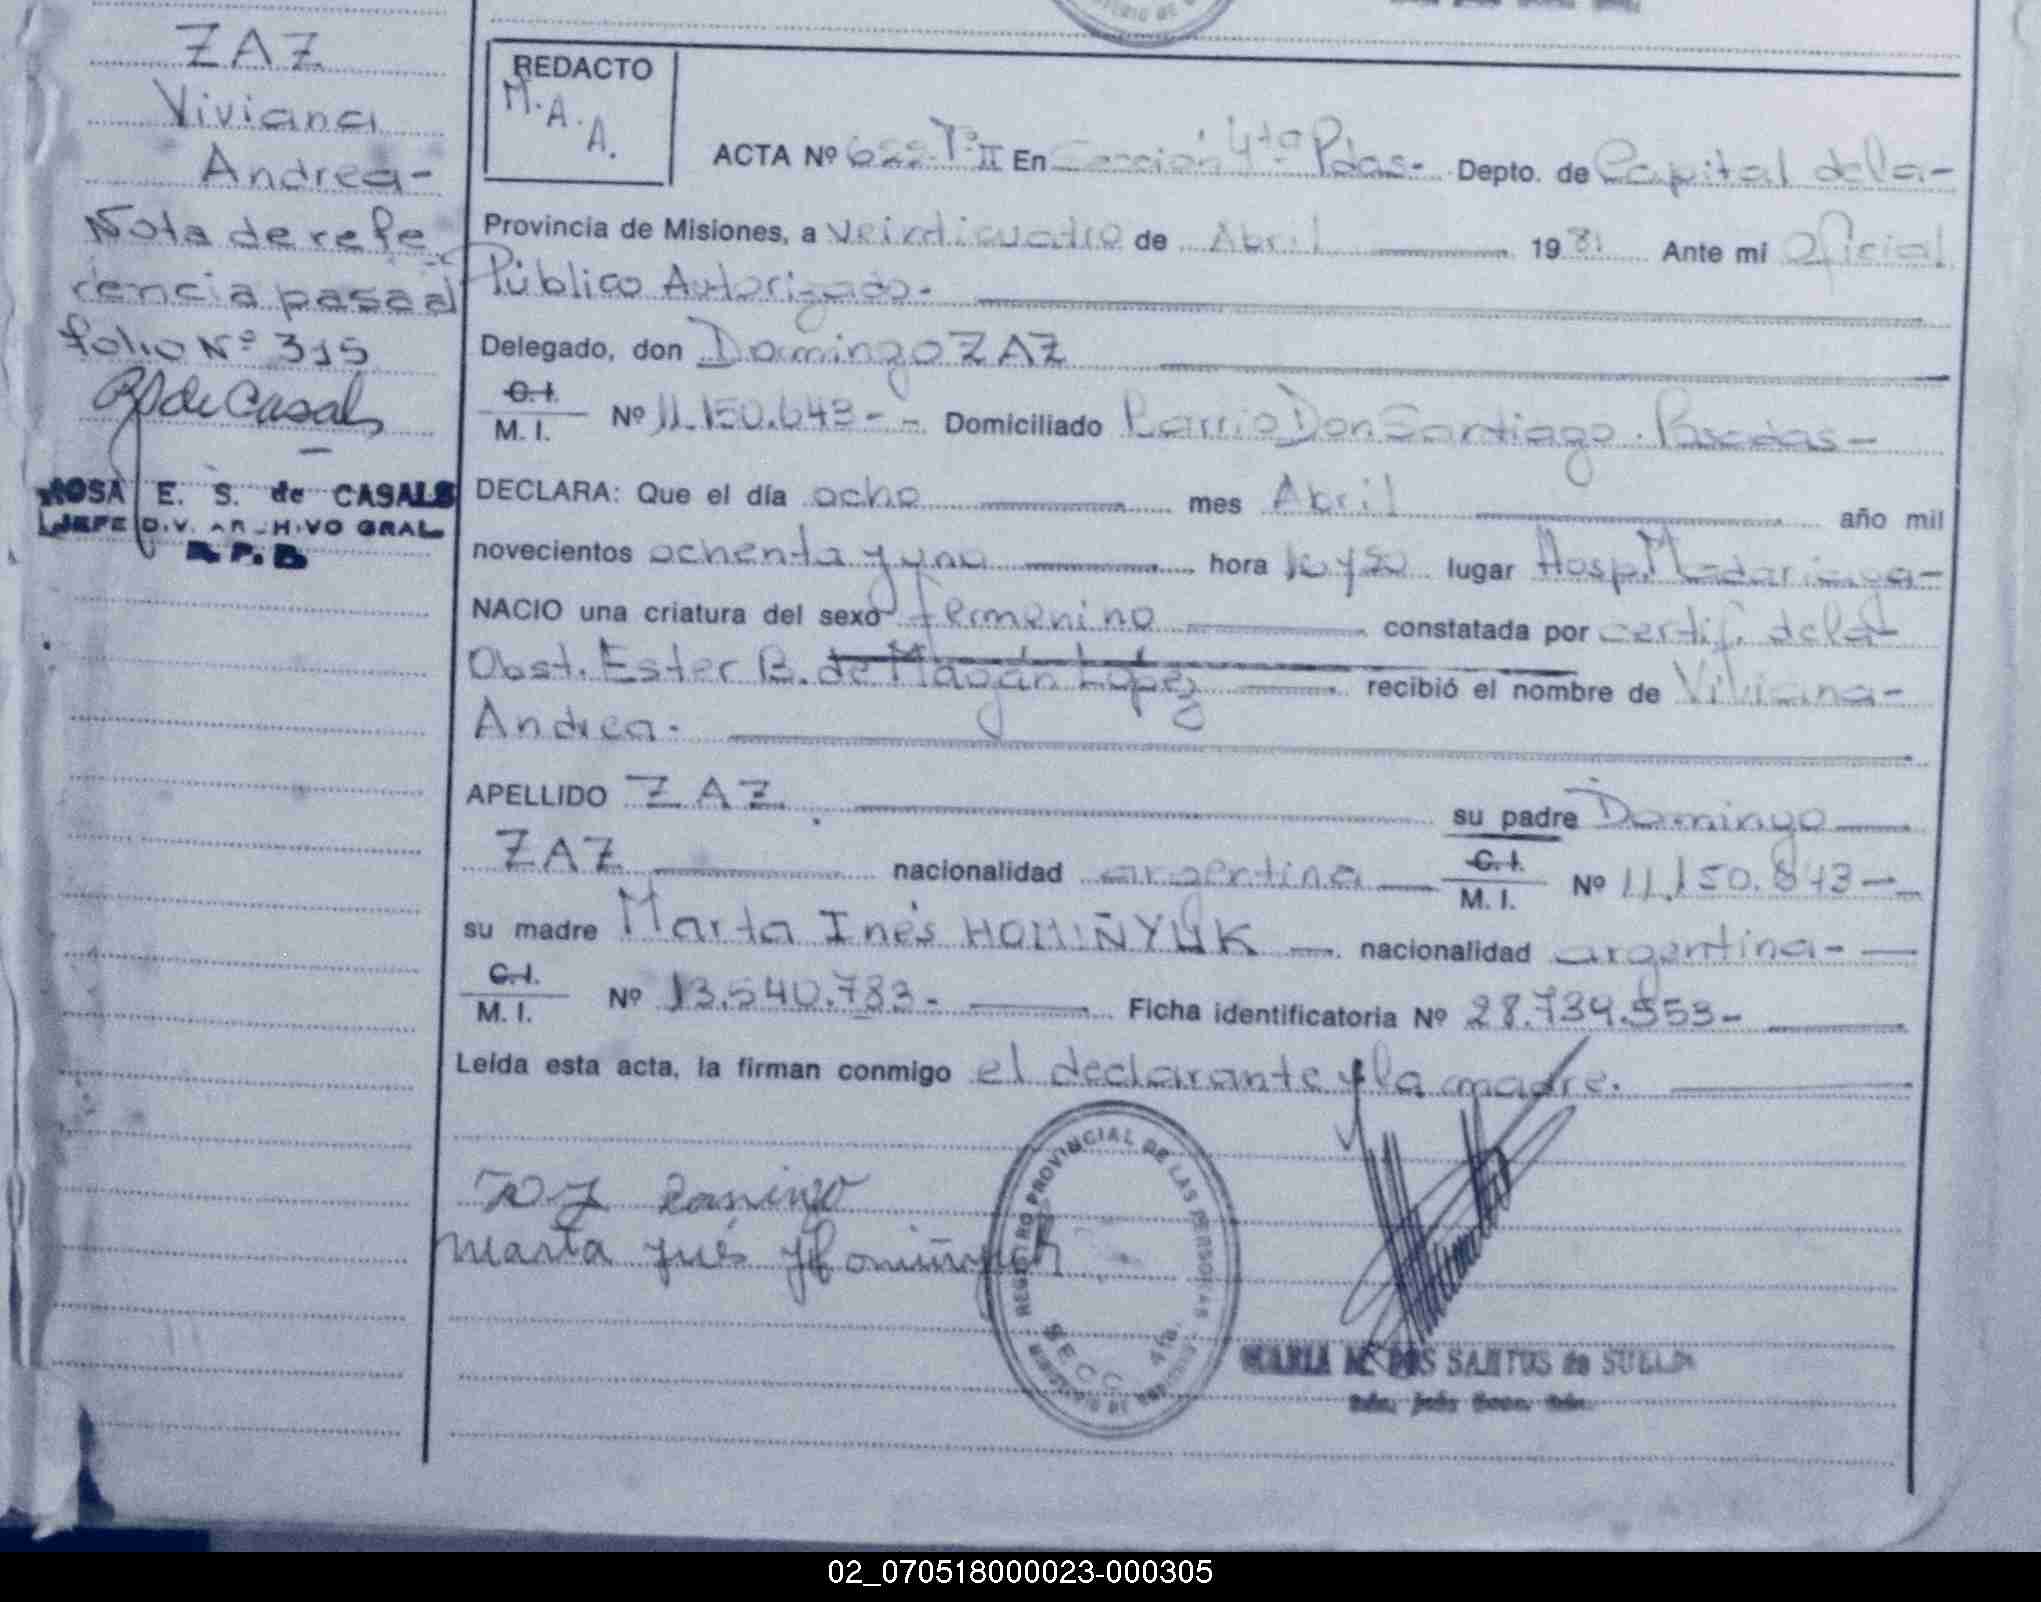 ZAZ
Viviana
Andrea-
Nota de refe
rencia pasa al
folio Nº 315
R S de Casals
ROSA E. S. de CASALS
JEFE DIV. ARCHIVO GRAL
R. P. B
REDACTO
M. A. A.
ACTA Nº 622 Tº II En Sección 4ta Pdas- Depto. de Capital de la-
Provincia de Misiones, a veinticuatro de Abril 1981 Ante mi Oficial
Público Autorizado.
Delegado, don Domingo ZAZ
C.I.
M. I. Nº 11.150.643-- Domiciliado Barrio Don Santiago. Posadas-
DECLARA: Que el día ocho mes Abril año mil
novecientos ochenta y uno hora 10 y 50 lugar Hosp. Madariaga-
NACIO una criatura del sexo femenino constatada por certif. de la
Obst. Ester B. de Magán López recibió el nombre de Viviana-
Andrea-
APELLIDO ZAZ. su padre Domingo
ZAZ nacionalidad argentina C.I.
M. I. Nº 11.150.843-
su madre Marta Inés HOMIÑYUK nacionalidad argentina-
C.I.
M. I. Nº 13.540.783- Ficha identificatoria Nº 28.734.553-
Leída esta acta, la firman conmigo el declarante y la madre.
Zaz Domingo
Marta Inés Homiñyuk
REGISTRO PROVINCIAL DE LAS PERSONAS
SECC. 4ta.
MINISTERIO DE GOBIERNO
MARIA M. DOS SANTOS de
02_070518000023-000305